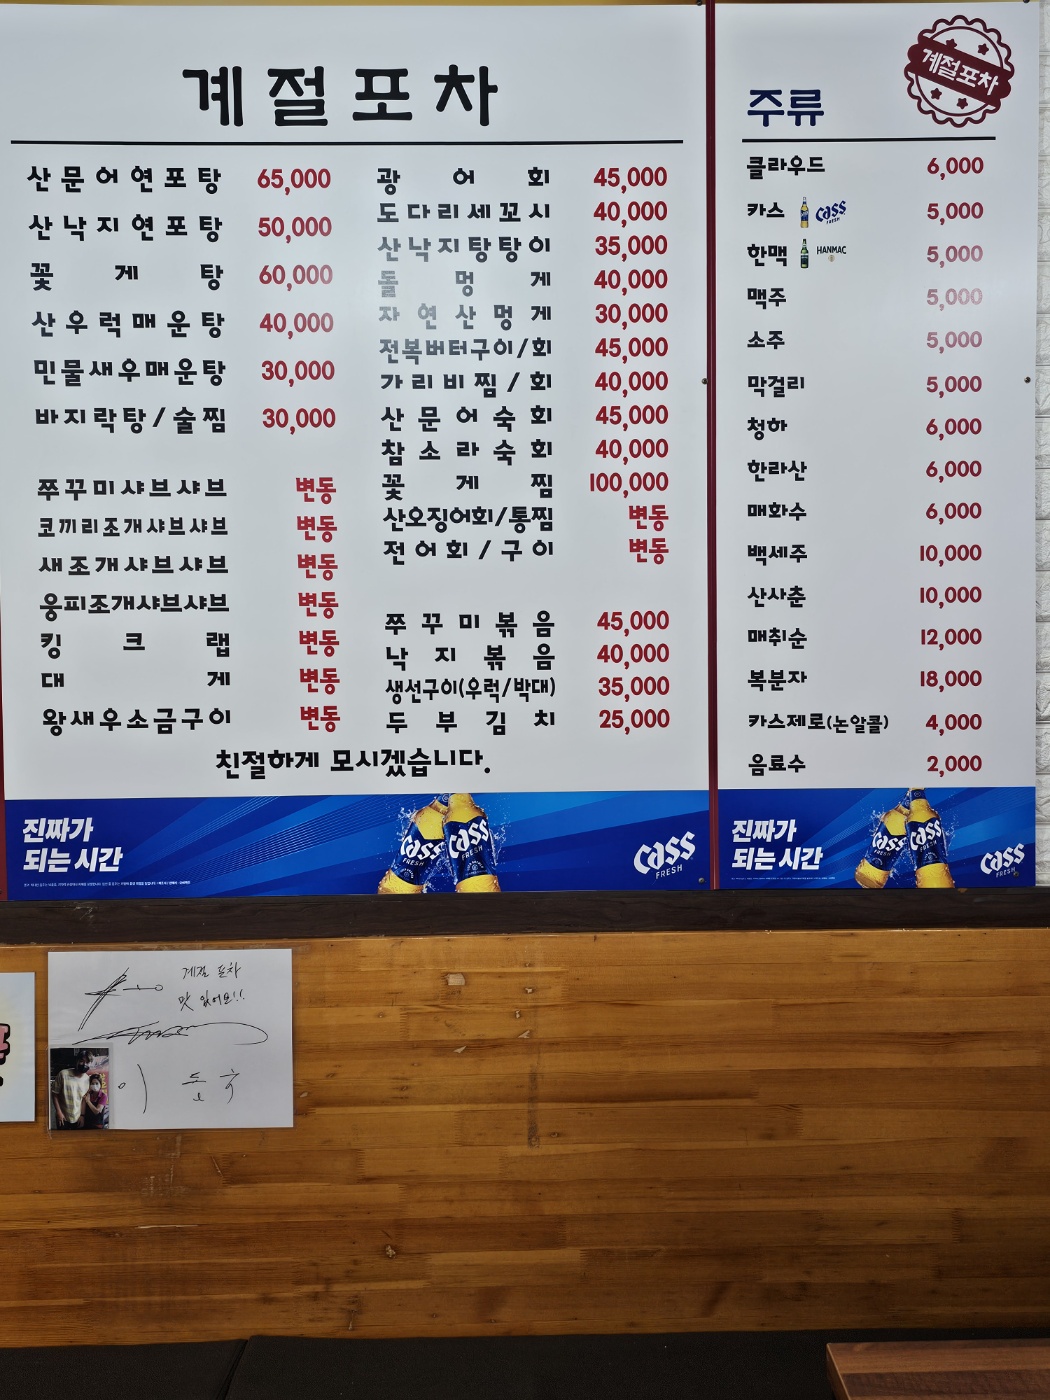 계절포차
산문어연포탕 65,000
산낙지연포탕 50,000
꽃게탕 60,000
산우럭매운탕 40,000
민물새우매운탕 30,000
바지락탕/술찜 30,000
쭈꾸미샤브샤브 변동
코끼리조개샤브샤브 변동
새조개샤브샤브 변동
웅피조개샤브샤브 변동
킹크랩 변동
대게 변동
왕새우소금구이 변동
광어회 45,000
도다리세꼬시 40,000
산낙지탕탕이 35,000
돌멍게 40,000
자연산멍게 30,000
전복버터구이/회 45,000
가리비찜/회 40,000
산문어숙회 45,000
참소라숙회 40,000
꽃게찜 100,000
산오징어회/통찜 변동
전어회/구이 변동
쭈꾸미볶음 45,000
낙지볶음 40,000
생선구이(우럭/박대) 35,000
두부김치 25,000
친절하게 모시겠습니다.
진짜가
되는 시간
Cass
FRESH
Cass
FRESH
Cass
FRESH
계절포차
주류
클라우드 6,000
카스 Cass FRESH 5,000
한맥 HANMAC 5,000
맥주 5,000
소주 5,000
막걸리 5,000
청하 6,000
한라산 6,000
매화수 6,000
백세주 10,000
산사춘 10,000
매취순 12,000
복분자 18,000
카스제로(논알콜) 4,000
음료수 2,000
진짜가
되는 시간
Cass
FRESH
Cass
FRESH
Cass
FRESH
계절 포차
맛 있어요!!